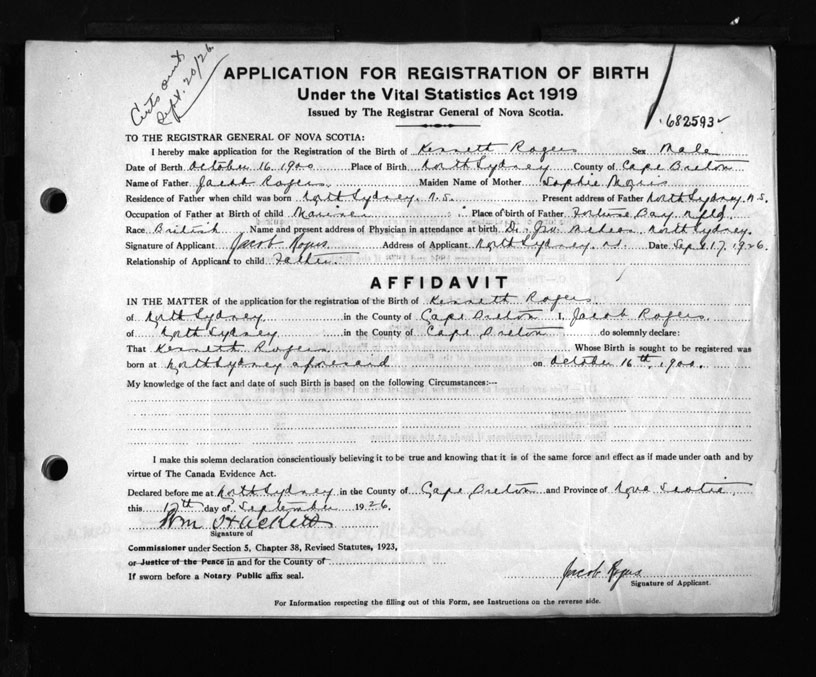 Certs sent
Sept. 20/26
APPLICATION FOR REGISTRATION OF BIRTH
Under the Vital Statistics Act 1919
Issued by The Registrar General of Nova Scotia.
682593
TO THE REGISTRAR GENERAL OF NOVA SCOTIA:
I hereby make application for the Registration of the Birth of Kenneth Rogers Sex Male
Date of Birth October 16. 1900 Place of Birth North Sydney County of Cape Breton
Name of Father Jacob Rogers. Maiden Name of Mother Sophie
Residence of Father when child was born North Sydney. N.S. Present address of Father North Sydney, N.S.
Occupation of Father at Birth of child Mariner Place of birth of Father Fortune Bay, Nfld.
Race British Name and present address of Physician in attendance at birth Dr. North Sydney.
Signature of Applicant Jacob Rogers Address of Applicant North Sydney. Date Sept. 17, 1926.
Relationship of Applicant to child Father.
AFFIDAVIT
IN THE MATTER of the application for the registration of the Birth of Kenneth Rogers.
of North Sydney in the County of Cape Breton I, Jacob Rogers.
of North Sydney in the County of Cape Breton do solemnly declare:
That Kenneth Rogers Whose Birth is sought to be registered was
born at North Sydney aforesaid on October 16th, 1900.
My knowledge of the fact and date of such Birth is based on the following Circumstances:—
I make this solemn declaration conscientiously believing it to be true and knowing that it is of the same force and effect as if made under oath and by
virtue of The Canada Evidence Act.
Declared before me at North Sydney in the County of Cape Breton and Province of Nova Scotia,
this 17th day of September 1926.
Wm Hackett
Signature of
Commissioner under Section 5, Chapter 38, Revised Statutes, 1923,
or Justice of the Peace in and for the County of
If sworn before a Notary Public affix seal.
Jacob Rogers
Signature of Applicant.
For Information respecting the filling out of this Form, see Instructions on the reverse side.